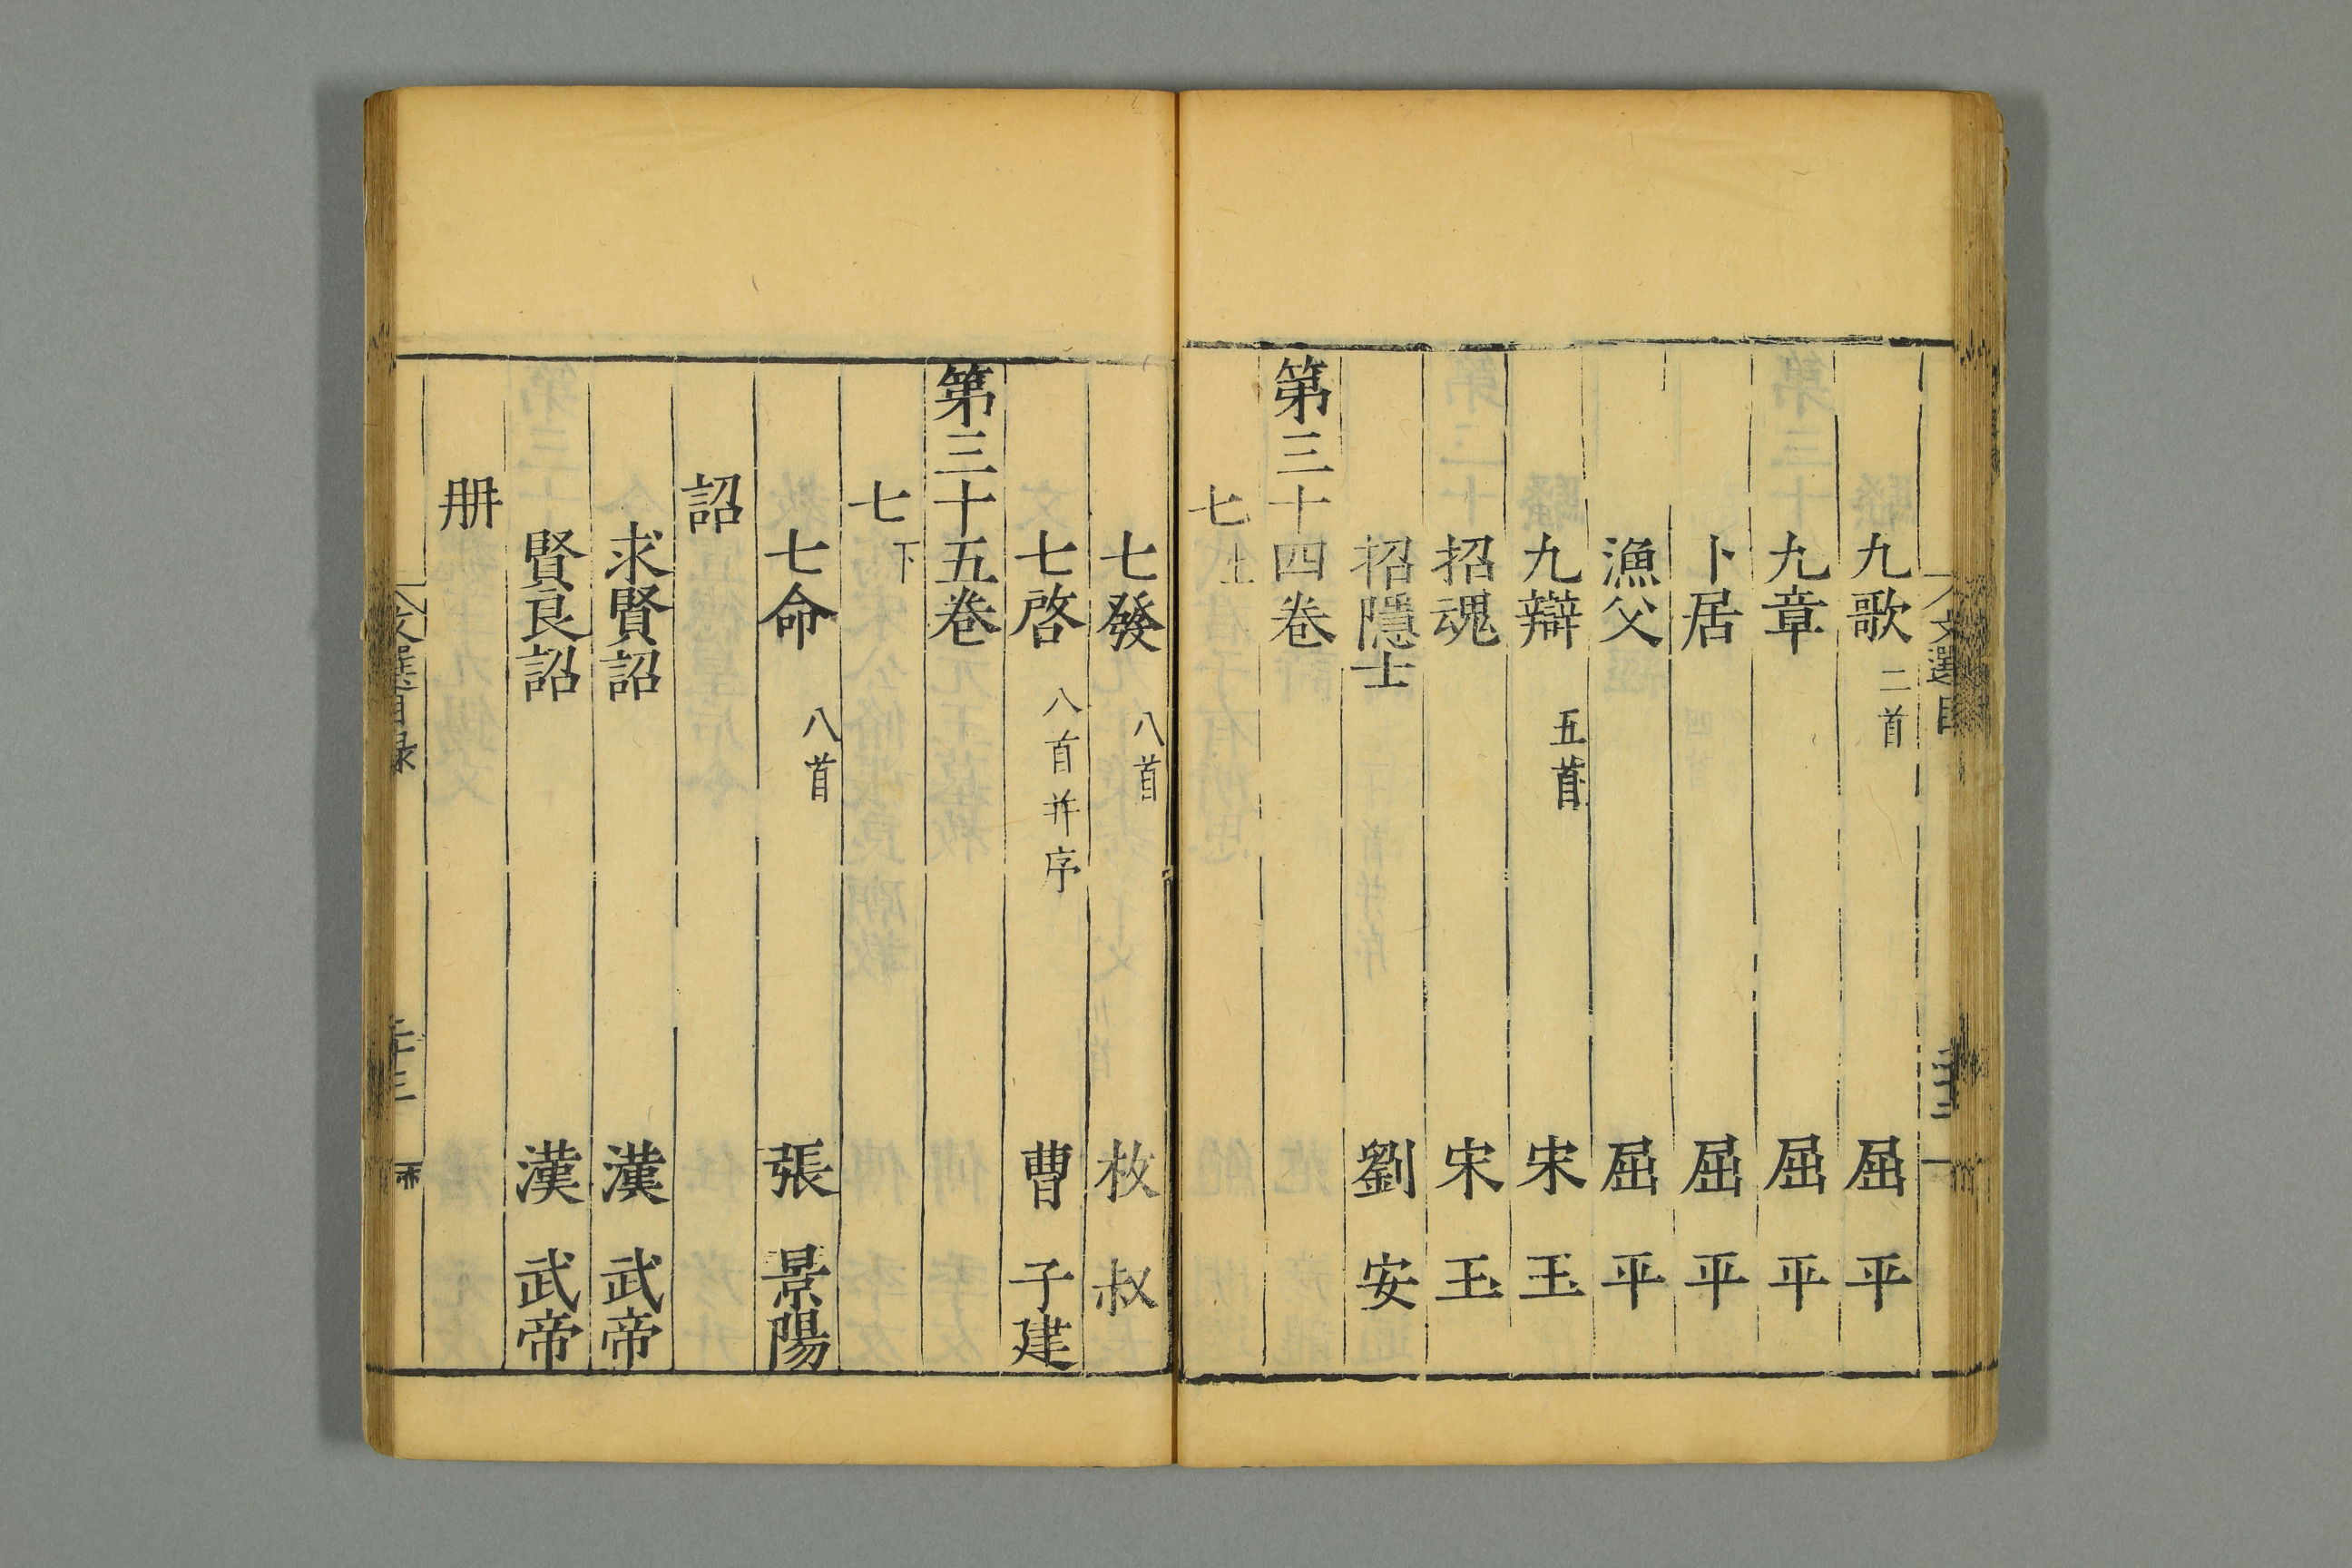 九歌 二首 屈平
九章 屈平
卜居 屈平
漁父 屈平
九辯 五首 宋玉
招魂 宋玉
招隱士 劉安
第三十四卷
七上
七發 八首 枚叔
七啓 八首并序 曹子建
第三十五卷
七下
七命 八首 張景陽
詔
求賢詔 漢武帝
賢良詔 漢武帝
册
文選目録